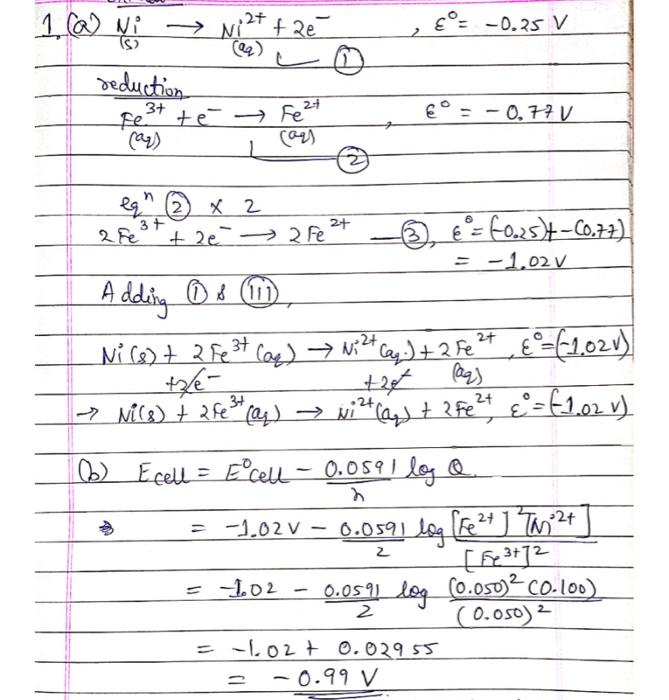 1. (a) Ni → Ni²⁺ + 2e⁻ , ε° = -0.25 V
(s) (aq) ①
reduction
Fe³⁺ + e⁻ → Fe²⁺ , ε° = -0.77 V
(aq) (aq) ②
eqⁿ ② × 2
2Fe³⁺ + 2e⁻ → 2Fe²⁺ — ③, ε° = (-0.25)+-(0.77)
= -1.02V
Adding ① & (iii),
Ni(s) + 2Fe³⁺(aq) → Ni²⁺(aq.) + 2Fe²⁺, ε° = (-1.02V)
+2e⁻ +2e⁻ (aq)
→ Ni(s) + 2Fe³⁺(aq) → Ni²⁺(aq) + 2Fe²⁺, ε° = (-1.02 V)
(b) Ecell = E°cell - 0.0591/n log Q
= -1.02V - 0.0591/2 log [Fe²⁺]²[Ni²⁺]/[Fe³⁺]²
= -1.02 - 0.0591/2 log (0.050)² (0.100)/(0.050)²
= -1.02 + 0.02955
= -0.99 V